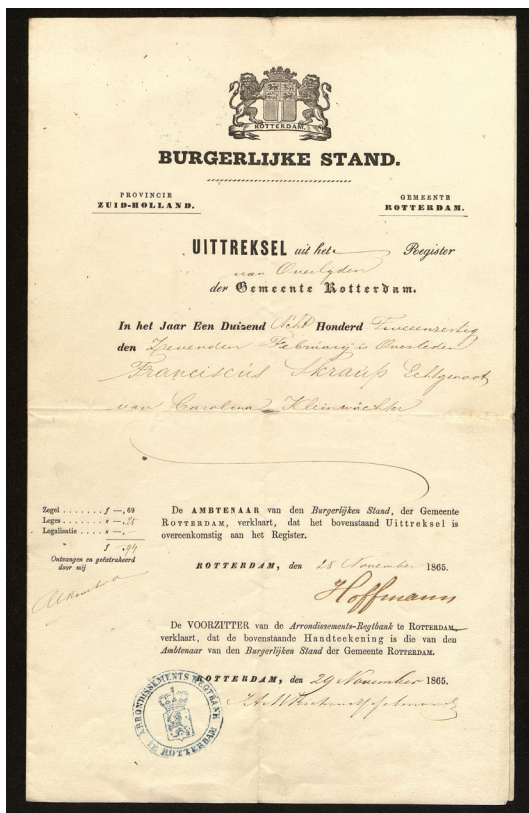 ROTTERDAM.
BURGERLIJKE STAND.
PROVINCIE
ZUID-HOLLAND.
GEMEENTE
ROTTERDAM.
UITTREKSEL uit het Register
van Overlyden
der Gemeente Rotterdam.
In het Jaar Een Duizend Acht Honderd Tweeenzestig
den Zevenden February is Overleden
Franciscus Skraup Echtgenoot
van Carolina Kleinwächter
Zegel . . . . . . . f —,69
Leges . . . . . . . " —,25
Legalisatie . . . " —,
f —,94
Ontvangen en geëxtraheerd
door mij
De AMBTENAAR van den Burgerlijken Stand, der Gemeente
ROTTERDAM, verklaart, dat het bovenstaand Uittreksel is
overeenkomstig aan het Register.
ROTTERDAM, den 28 November 1865.
Hoffmann
De VOORZITTER van de Arrondissements-Regtbank te ROTTERDAM,
verklaart, dat de bovenstaande Handteekening is die van den
Ambtenaar van den Burgerlijken Stand der Gemeente ROTTERDAM.
ROTTERDAM, den 29 November 1865.
ARRONDISSEMENTS REGTBANK
TE ROTTERDAM